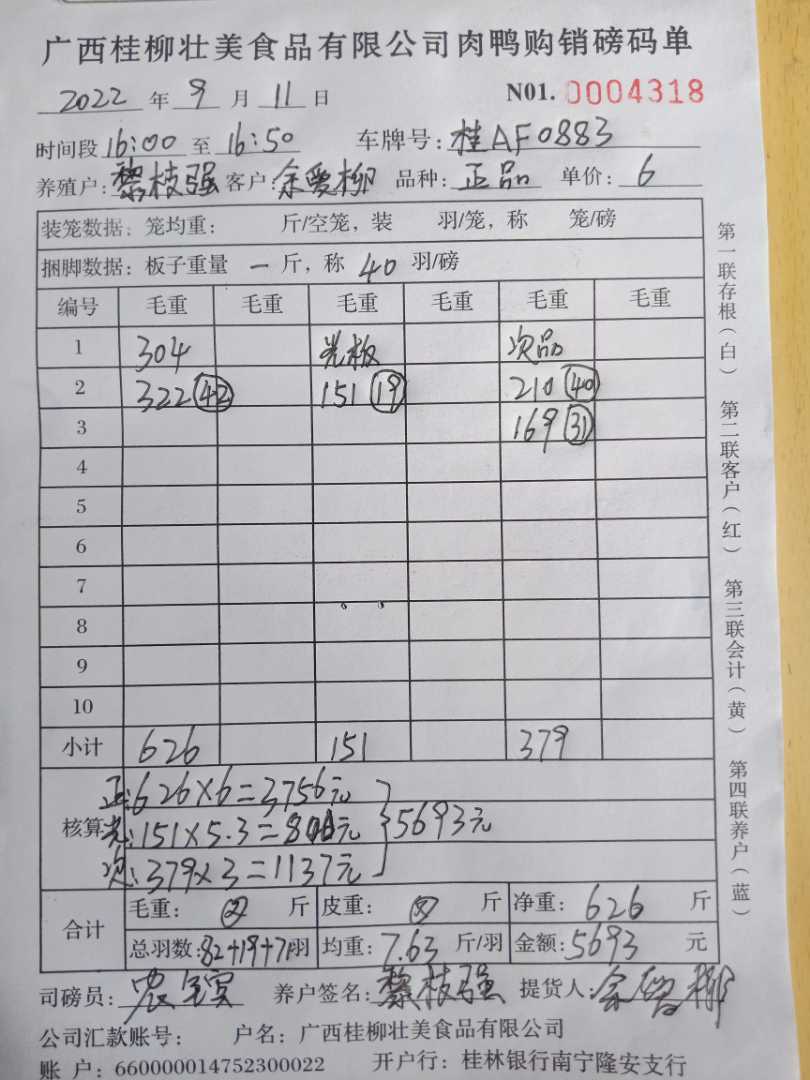 广西桂柳壮美食品有限公司肉鸭购销磅码单
2022 年 9 月 11 日 N01. 0004318
时间段 16:00 至 16:50 车牌号: 桂AF0883
养殖户: 黎枝强 客户: 余爱柳 品种: 正品 单价: 6
装笼数据: 笼均重: 斤/空笼, 装 羽/笼, 称 笼/磅
捆脚数据: 板子重量 一 斤, 称 40 羽/磅
编号 毛重 毛重 毛重 毛重 毛重 毛重
1 304 光板 次品
2 322 42 151 19 210 40
3 169 31
4
5
6
7
8
9
10
小计 626 151 379
正: 626×6=3756元
核算 光: 151×5.3=800元 }5693元
次: 379×3=1137元
合计 毛重: 斤 皮重: 斤 净重: 626 斤
总羽数: 82+19+71羽 均重: 7.63 斤/羽 金额: 5693 元
司磅员: 养户签名: 黎枝强 提货人: 余爱柳
公司汇款账号: 户名: 广西桂柳壮美食品有限公司
账 户: 660000014752300022 开户行: 桂林银行南宁隆安支行
第一联存根(白) 第二联客户(红) 第三联会计(黄) 第四联养户(蓝)